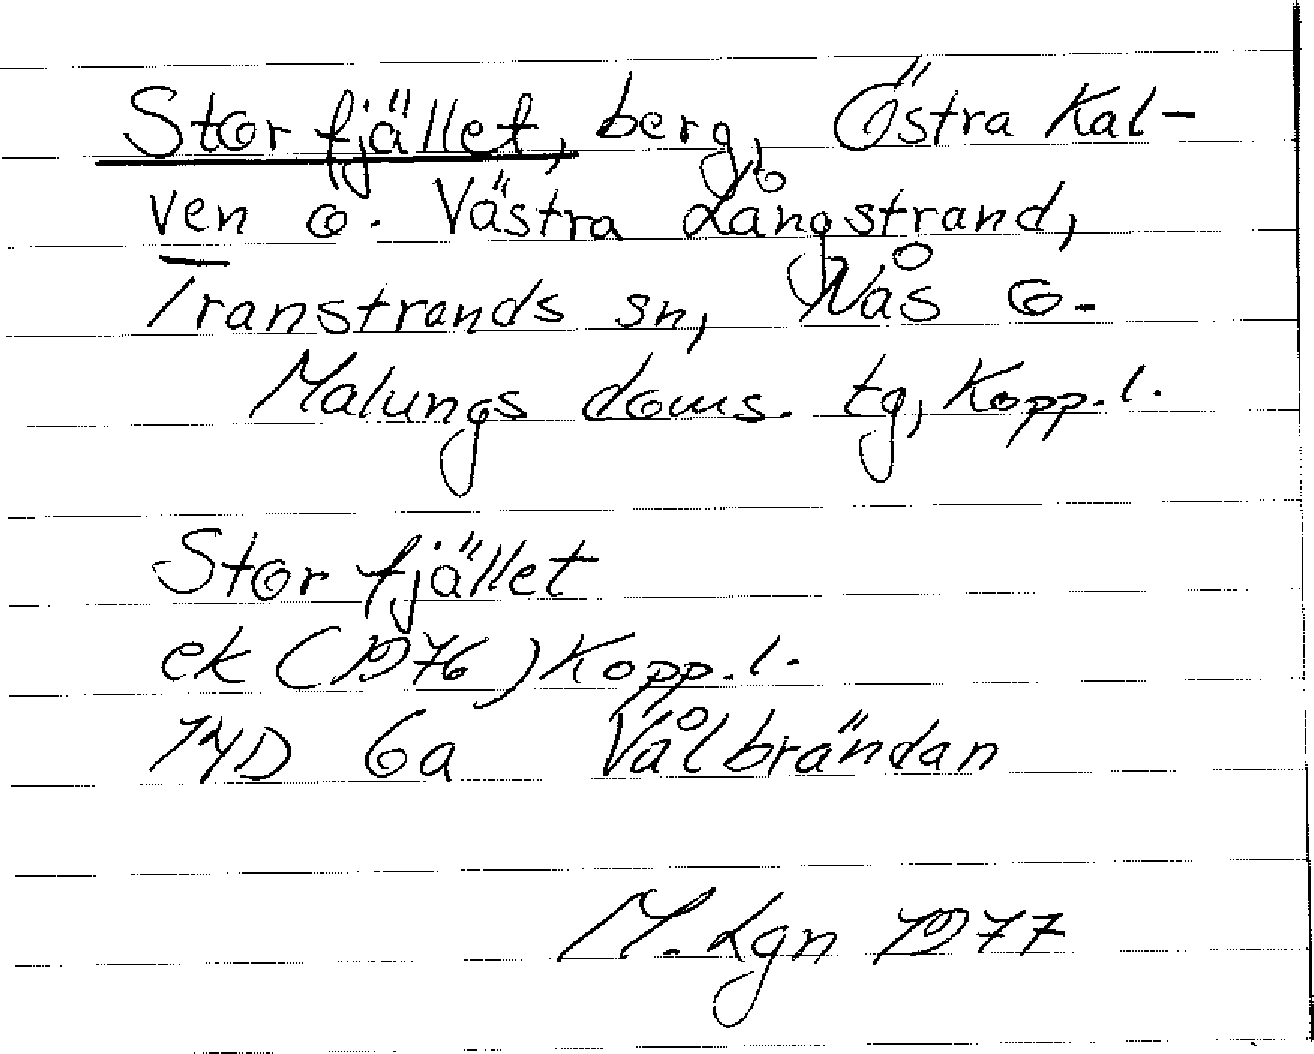 Storfjället, berg, Östra Kal-
ven o. Västra Långstrand,
Transtrands sn, Nås o.
Malungs doms. tg, Kopp. l.
Storfjället
ek (1976) Kopp. l.
14D 6a Vålbrändan
M. Lgn 1977